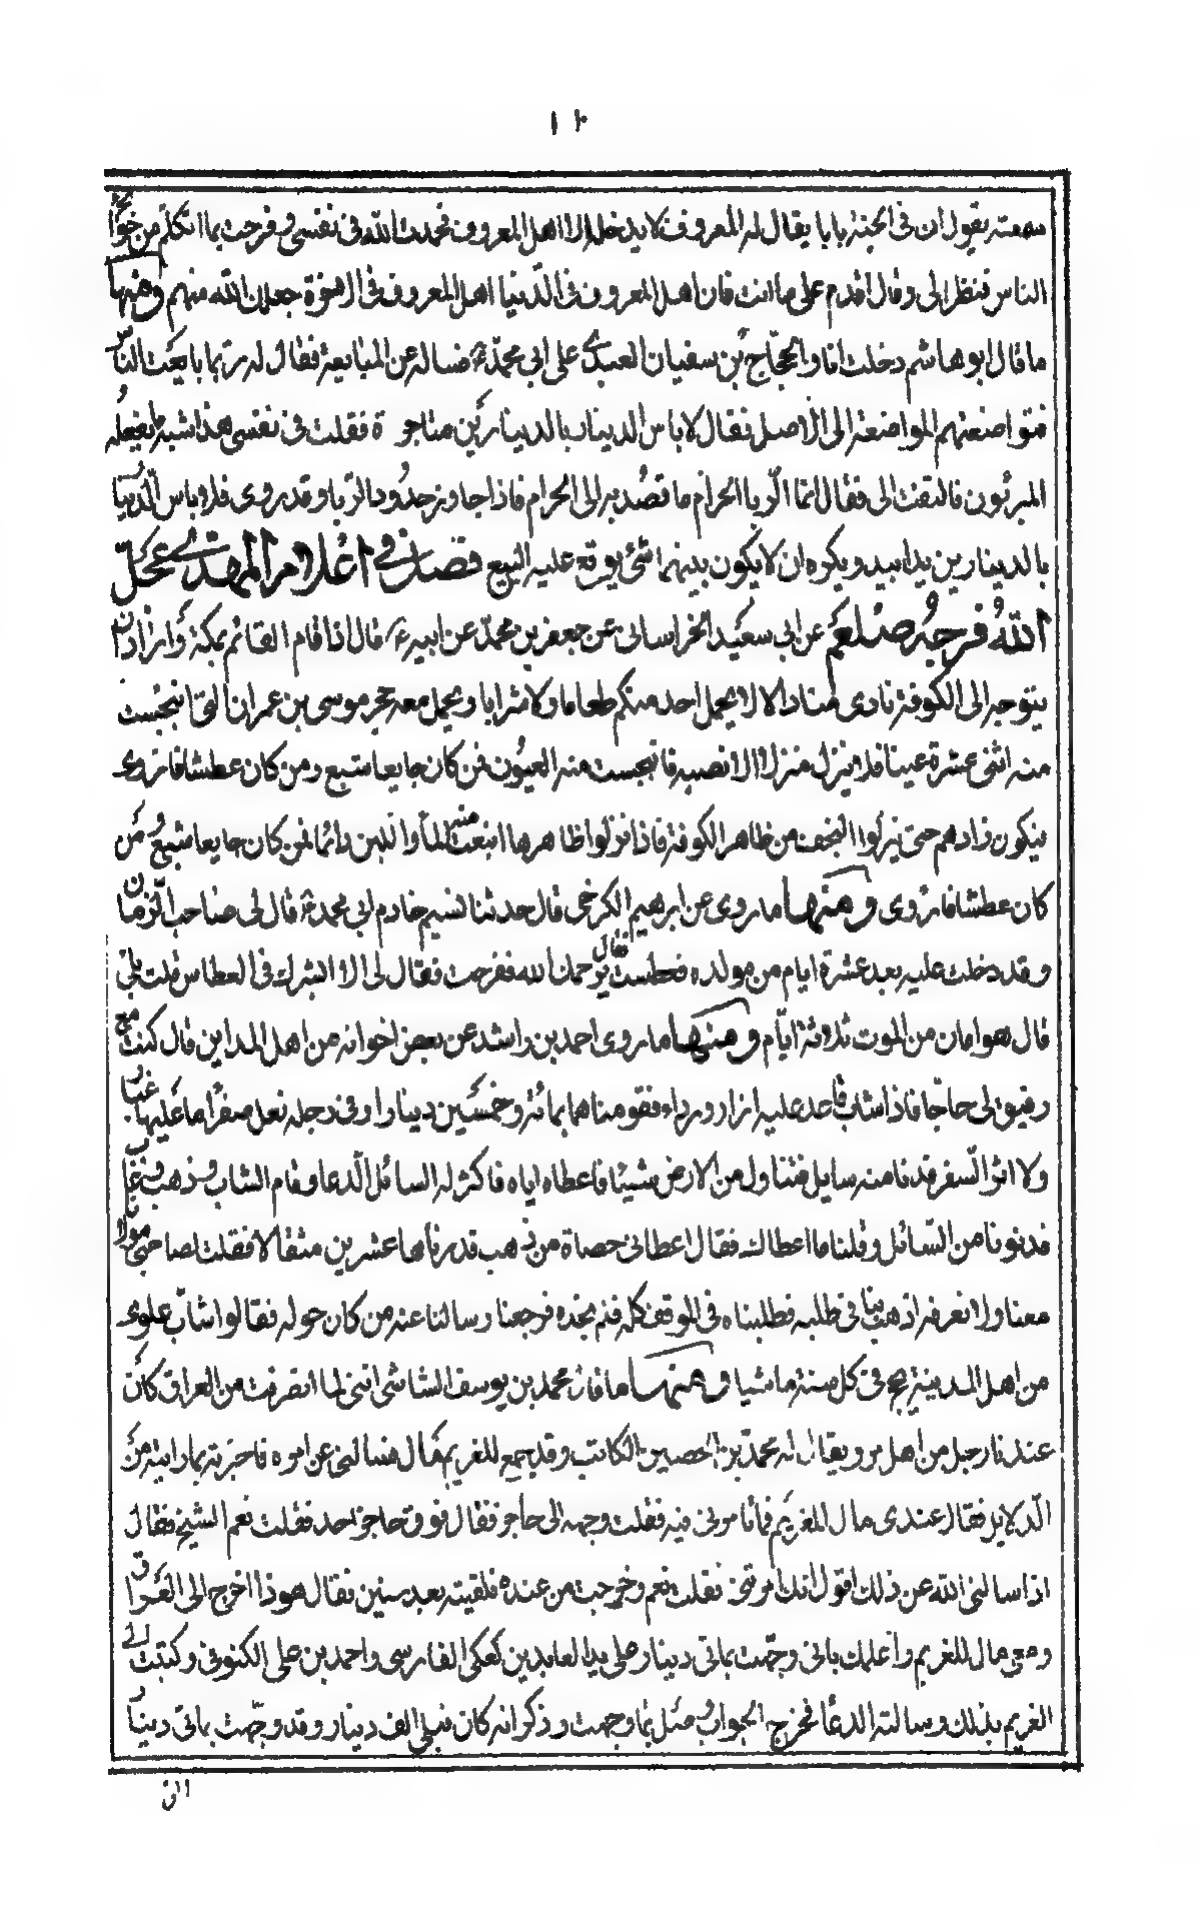 سمعته يقول ان فى الجنة بابا يقال له المعروف لا يدخله الا اهل المعروف فحمدت الله فى نفسى و فرحت بما اتكلم من حوائج
الناس فنظر الى وقال اقدم على ما انت فان اهل المعروف فى الدنيا اهل المعروف فى الاخرة جعلك الله منهم ومنها
ما قال ابو هاشم دخلت انا والحجاج بن سفيان العبدى على ابى محمد ع فساله عن المبايعة فقال له ربما بايعت الناس
فتواضعتهم المواضعة الى الاصل فقال لا باس الدينار بالدينارين فقلت فى نفسى هذا شبه ما يفعله
المربئون فالتفت الى فقال انما الربا الحرام ما قصد به الى الحرام فاذا جاوز حدود الربا وقد روى فلا باس الدينار
بالدينارين يدا بيد ويكره ان لا يكون بينهما شئ يوقع عليه البيع فصل فى اعلام المهدى عجل
الله فرجه صلعم عن ابى سعيد الخراسانى عن جعفر بن محمد عن ابيه ع قال اذا قام القائم بمكة وارادان
يتوجه الى الكوفة نادى مناد الا لا يحمل احد منكم طعاما ولا شرابا ويحمل معه حجر موسى بن عمران التى انبجست
منه اثنى عشرة عينا فلا ينزل منزلا الا نصبه فانبجست منه العيون فمن كان جايعا شبع ومن كان عطشانا روى
فيكون زادهم حتى ينزلوا النجف من ظاهر الكوفة فاذا نزلوا ظاهرها انبعث منه الماء واللبن دائما فمن كان جايعا شبع و من
كان عطشانا روى ومنها ما روى عن ابرهيم الكرخى قال حدثنا نسيم خادم ابى محمد ع قال لى صاحب الزمان
وقد دخلت عليه بعد عشرة ايام من مولده فعطست فقال يرحمك الله ففرحت فقال لى الا ابشرك فى العطاس قلت بلى
قال هو امان من الموت ثلاثة ايام ومنها ما روى احمد بن راشد عن بعض اخوانه من اهل المداين قال كنت مع
رفيق لى حاجا فاذا شاب قاعد عليه ازار ورداء فقومناهما بمائة وخمسين دينارا وفى رجله نعل صفرا ما عليها غبار
ولا اثر السفر فدنا منه سايل فتناول من الارض شيئا فاعطاه اياه فاكثر له السائل الدعا وقام الشاب وذهب وغاب
فدنونا من السائل وقلنا ما اعطاك فقال اعطانى حصاة من ذهب قدرناها عشرين مثقالا فقلت لصاحبى مولانا
معنا ولا نعرفه اذهب بنا فى طلبه فطلبناه فى الموقف كله فلم نجده فرجعنا وسالنا عنه من كان حوله فقالوا شاب علوى
من اهل المدينة يحج فى كل سنة ماشيا ومنها ما قال محمد بن يوسف الشاشى اننى لما انصرفت من العراق كان
عندنا رجل من اهل مرو يقال له محمد بن الحصين الكاتب وقد جمع للغريم مال فسالنى عن امره فاخبرته بما رايته من
الدلايل فقال عندى مال للغريم فما تامرنى فيه فقلت وجهه الى حاجز فقال فوق حاجز احد فقلت نعم الشيخ فقال
اذا سالنى الله عن ذلك اقول انك امرتنى فقلت نعم وخرجت من عنده فلقيته بعد سنين فقال هو ذا اخرج الى العراق
ومعى مال للغريم واعلمك بانى وجهت بمائتى دينار على يد العابد بن يعلى الفارسى واحمد بن على الكلثومى وكتبت الى
الغريم بذلك وسالته الدعا فخرج الجواب بما وجهت وذكر انه كان قبلى الف دينار وقد وجهت بمائتى دينار